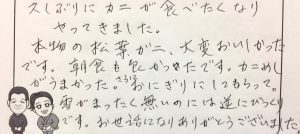 久しぶりに カニが食べたくなり
やってきました。
本物の松葉がニ、大変おいしかった
です。朝食も良かったです。カニめし
がうまかった。さらにおにぎりにしてもらって。
雪がまったく無いのには逆にびっくり
です。お世話になりありがとうございました